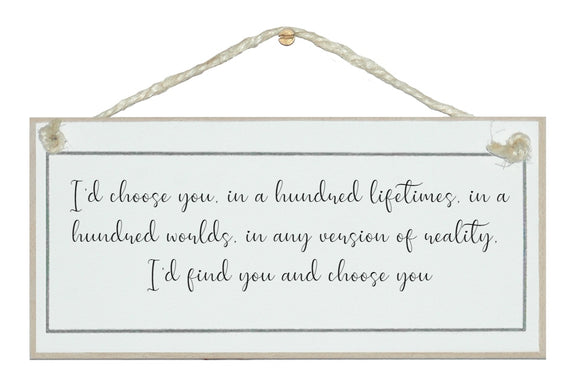 I'd choose you, in a hundred lifetimes, in a
hundred worlds, in any version of reality,
I'd find you and choose you